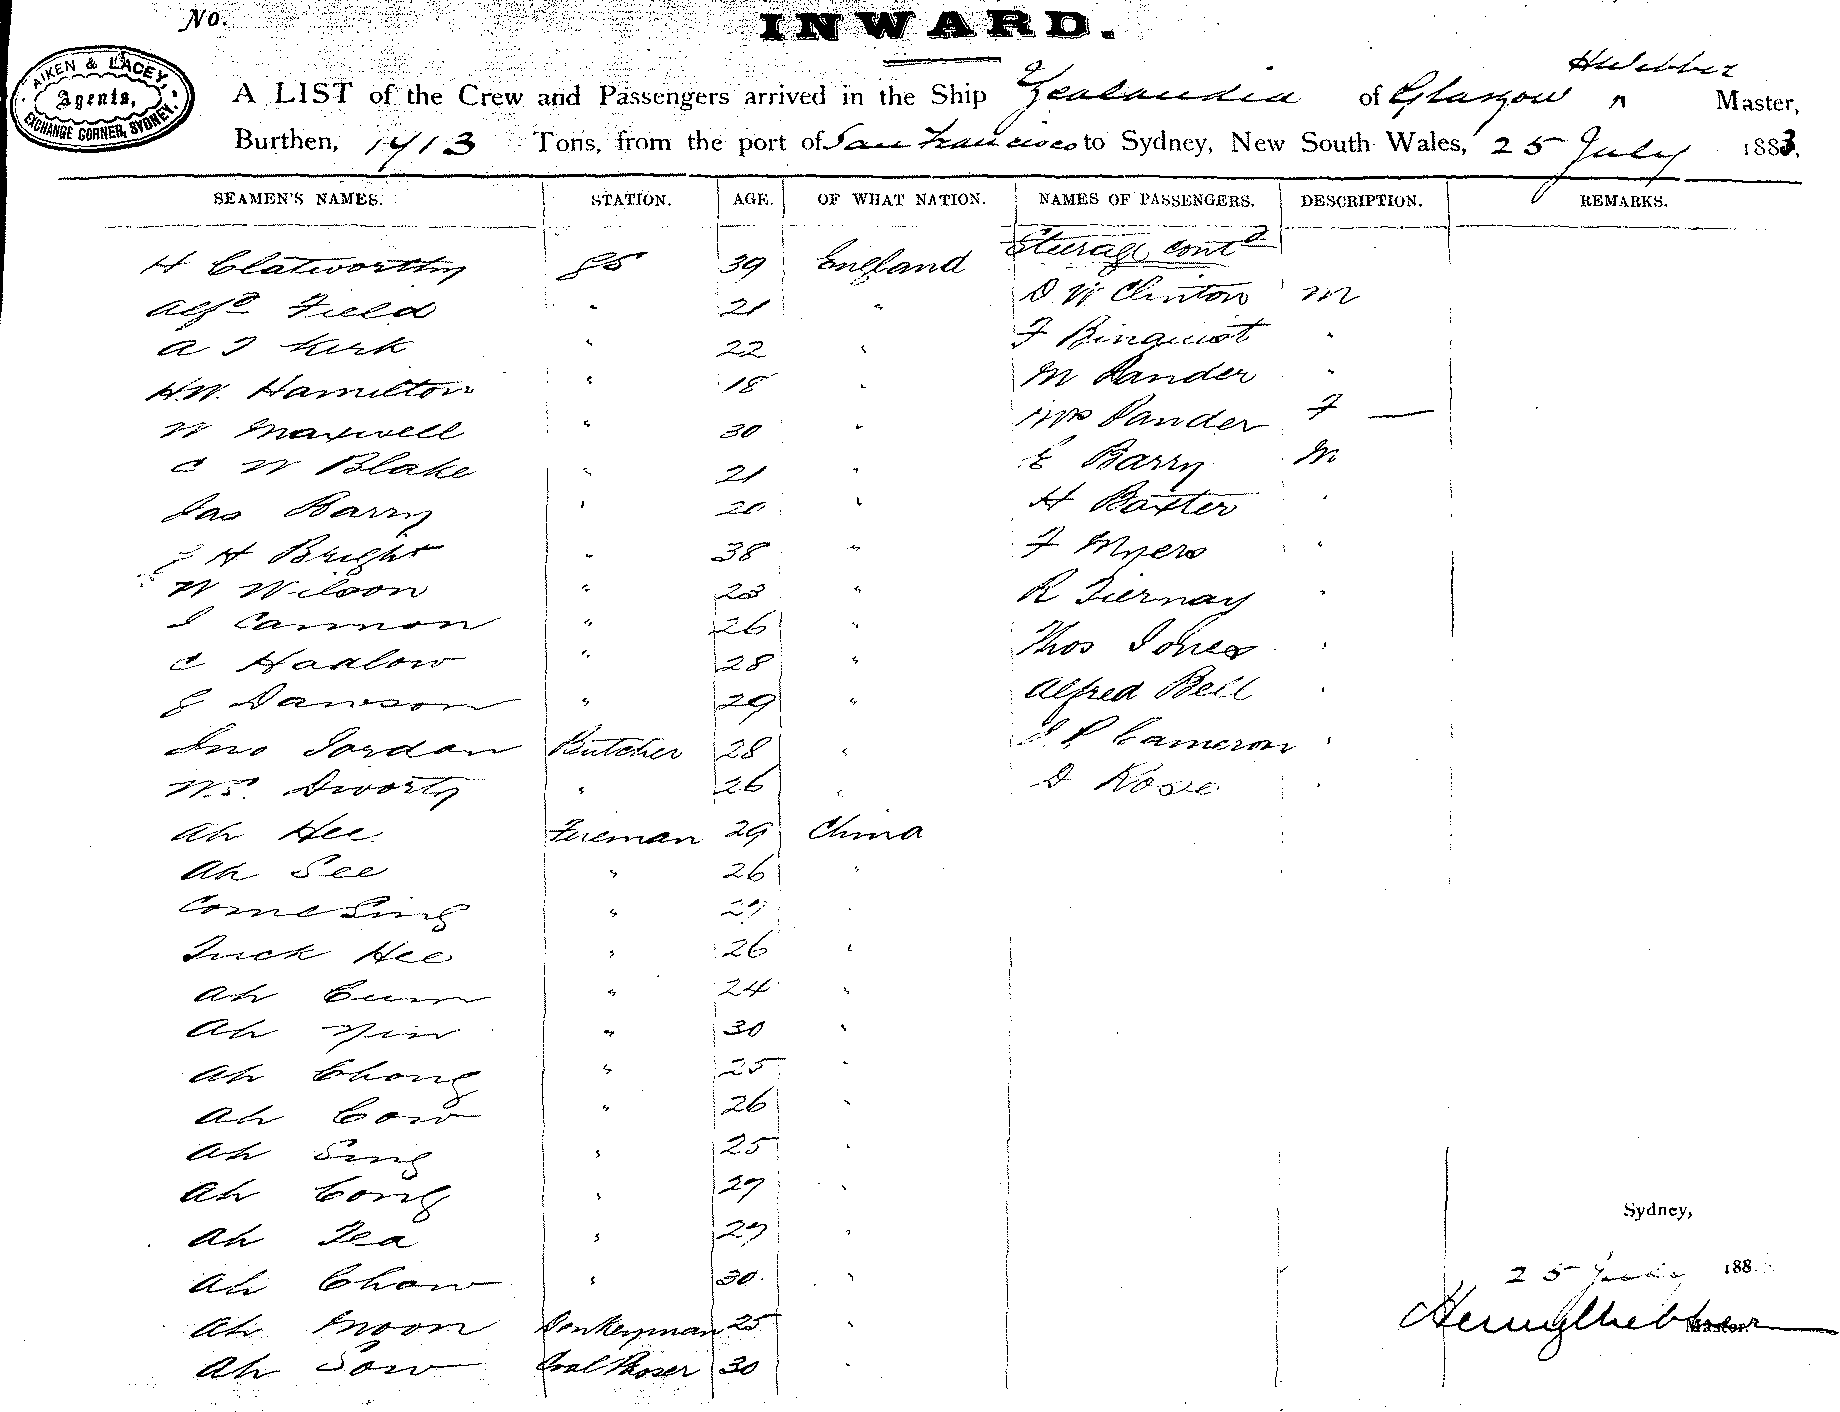 No.
INWARD.
AIKEN & LACEY,
Agents,
EXCHANGE CORNER, SYDNEY.
H Webber
A LIST of the Crew and Passengers arrived in the Ship Zealandia of Glasgow " Master,
Burthen, 1413 Tons, from the port of San Francisco to Sydney, New South Wales, 25 July 1883.
SEAMEN'S NAMES. STATION. AGE. OF WHAT NATION. NAMES OF PASSENGERS. DESCRIPTION. REMARKS.
Steerage contd
H Clatworthy 39 England
Alfd Field " 21 " D W Clinton M
A J Kirk " 22 " F Binquist "
H.W. Hamilton " 18 " M Pander "
W Maxwell " 30 " Mrs Pander F —
C W Blake " 21 " E Barry M
Jas Barry " 20 " H Baxter "
J H Bright " 38 " F Myers "
W Wilson " 23 " R Tiernay "
J Cannon " 26 " Thos Jones "
C Haslow " 28 " Alfred Bell "
Dawson " 29 " Cameron "
Jno Jordan Butcher 28 " D Rose "
Wm Dworty " 26 "
Ah Hee Fireman 29 China
Ah See " 26 "
Come Sing " 27 "
Tuck Hee " 26 "
Ah Cum " 24 "
Ah Yin " 30 "
Ah Chong " 25 "
Ah Cow " 26 "
Ah Sing " 25 "
Ah Cong " 27 "
Ah Tea " 27 "
Ah Chow " 30 "
Ah Moon Donkeyman 25 "
Ah Sow Coal Passer 30 "
Sydney,
25 July 188
Henry Webber
Master.